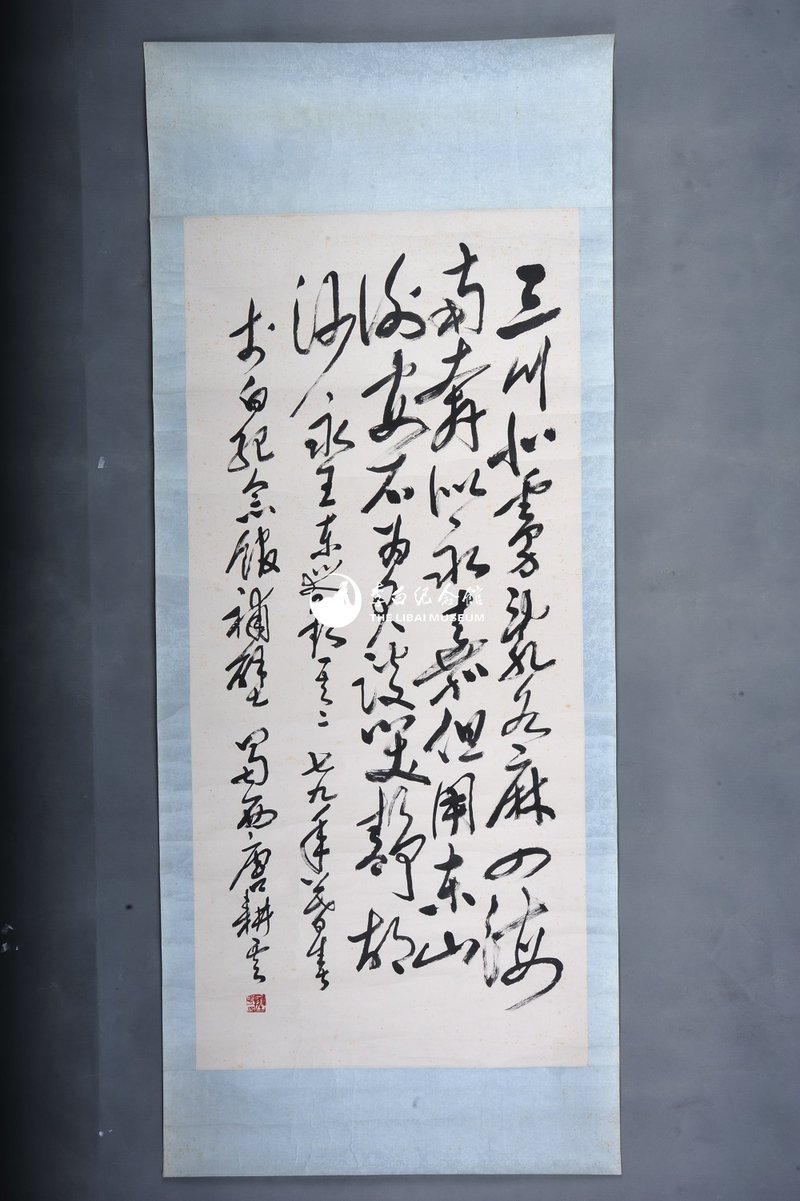 三川北虏乱如麻四海
南奔似永嘉但用东山
谢安石为君谈笑静胡
沙 永王东巡歌之二 七九年暮春
李白纪念馆补壁 蜀西唐耕云
李白纪念馆
THE LIBAI MUSEUM